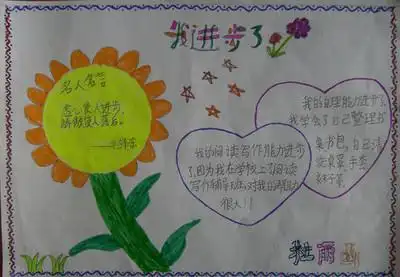 我进步了
名人名言
虚心使人进步,
骄傲使人落后。
——毛泽东
我的阅读写作能力进步
了因为我在学校上了阅读
写作辅导班,对我的帮助
很大!!
我的自理能力进步了,
我学会了自己整理书
桌书包,自己清
洗